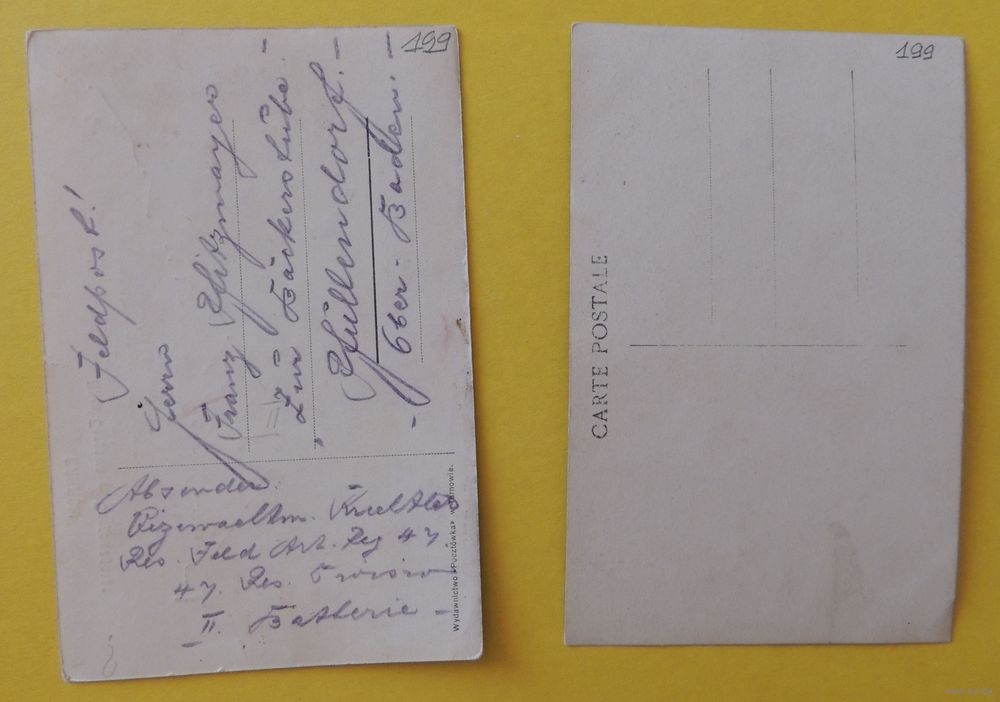 199
Feldpost!
Herrn
Franz Pfitzmayer
"Zur Bäckerstube"
Pfullendorf.
Ober-Baden.
Absender.
Vizewachtm.
Res. Feld Art. Reg 47.
47. Res. Division
II. Batterie
Wydawnictwo «Pocztówka» w
199
CARTE POSTALE